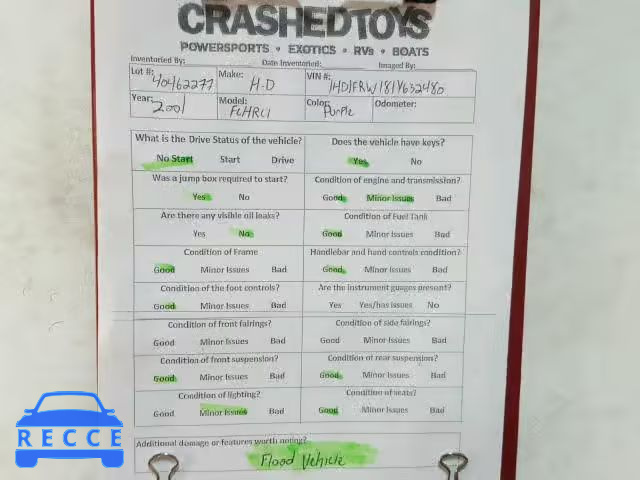 CRASHEDTOYS
POWERSPORTS • EXOTICS • RVs • BOATS
Inventoried By: Date Inventoried: Imaged By:
Lot #: 40462277 Make: H-D VIN #: 1HD1FRW181Y632480
Year: 2001 Model: Color: Purple Odometer:
What is the Drive Status of the vehicle? Does the vehicle have keys?
No Start Start Drive Yes No
Was a jump box required to start? Condition of engine and transmission?
Yes No Good Minor Issues Bad
Are there any visible oil leaks? Condition of Fuel Tank
Yes No Good Minor Issues Bad
Condition of Frame Handlebar and hand controls condition?
Good Minor Issues Bad Good Minor Issues Bad
Condition of the foot controls? Are the instrument guages present?
Good Minor Issues Bad Yes Yes/has issues No
Condition of front fairings? Condition of side fairings?
Good Minor Issues Bad Good Minor Issues Bad
Condition of front suspension? Condition of rear suspension?
Good Minor Issues Bad Good Minor Issues Bad
Condition of lighting? Condition of seats?
Good Minor Issues Bad Good Minor Issues Bad
Additional damage or features worth noting?
Flood Vehicle
RECCE